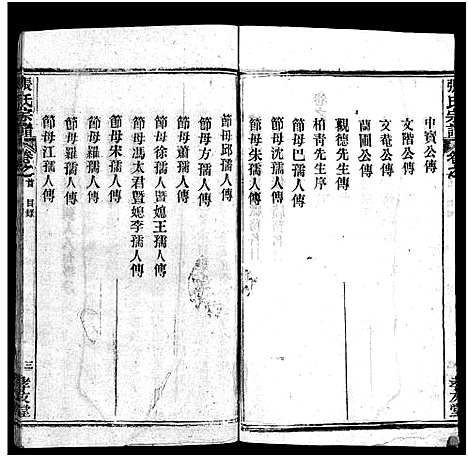 張氏宗譜
申寶公傳
文階公傳
文菴公傳
蘭圃公傳
觀德先生傳
柏青先生序
節母巴孺人傳
節母沈孺人傳
節母朱孺人傳
節母邱孺人傳
節母方孺人傳
節母蕭孺人傳
節母徐孺人暨媳王孺人傳
節母馮太君暨媳李孺人傳
節母宋孺人傳
節母羅孺人傳
節母江孺人傳
張氏宗譜
卷之首 目錄
三 孝友堂